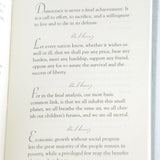 Democracy is never a final achievement. It
is a call to effort, to sacrifice, and a willingness
to live and to die in its defense.
Let every nation know, whether it wishes us
well or ill, that we shall pay any price, bear any
burden, meet any hardship, support any friend,
oppose any foe to assure the survival and the
success of liberty.
For in the final analysis, our most basic
common link, is that we all inhabit this small
planet, we all breathe the same air, we all cherish
our children's futures, and we are all mortal.
Economic growth without social progress
lets the great majority of the people remain in
poverty, while a privileged few reap the benefits